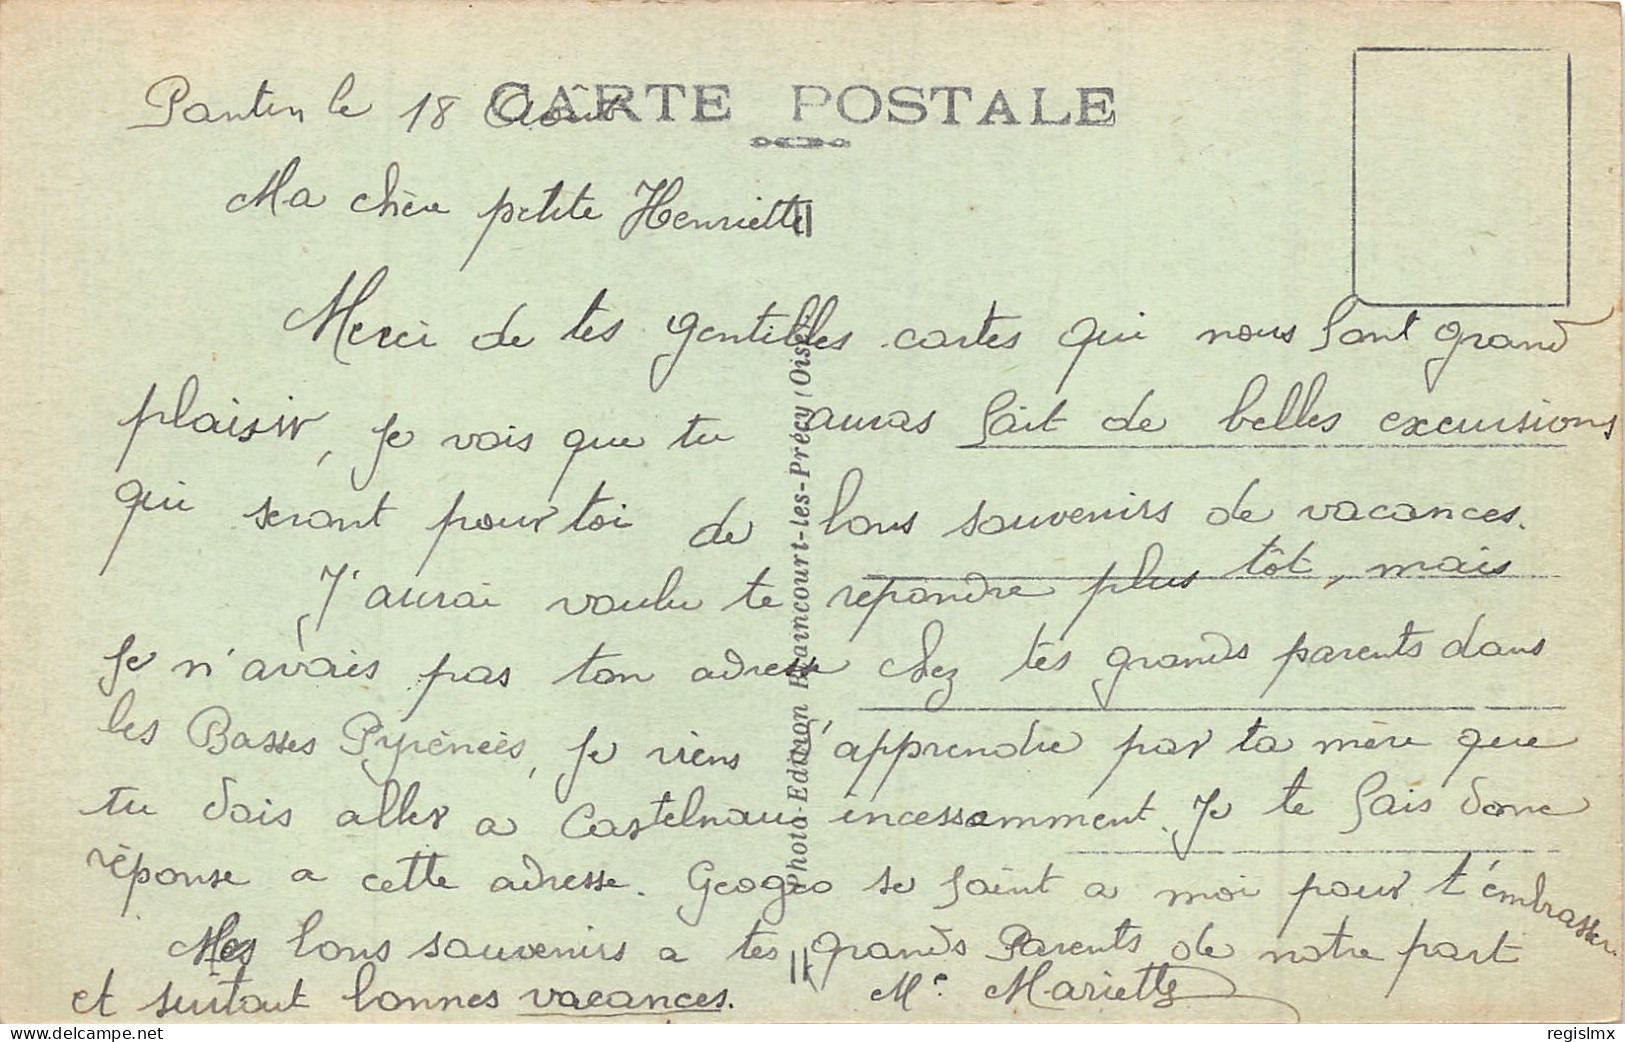 CARTE POSTALE
Pantin le 18 Août
Ma chère petite Henriette
Merci de tes gentilles cartes qui nous font grand
plaisir, je vois que tu auras fait de belles excursions
qui seront pour toi de bons souvenirs de vacances.
J'aurai voulu te repondre plus tôt, mais
je n'avais pas ton adresse chez tes grands parents dans
les Basses Pyrénées, je viens d'apprendre par ta mère que
tu dois aller a Castelnau incessamment. Je te fais donc
réponse a cette adresse. Geogeo se joint a moi pour t'embrasser.
Mes bons souvenirs a tes grands Parents de notre part
et surtout bonnes vacances. Me Mariette
Photo-Edition Hraincourt-les-Précy (Oise)
regislmx
delcampe.net